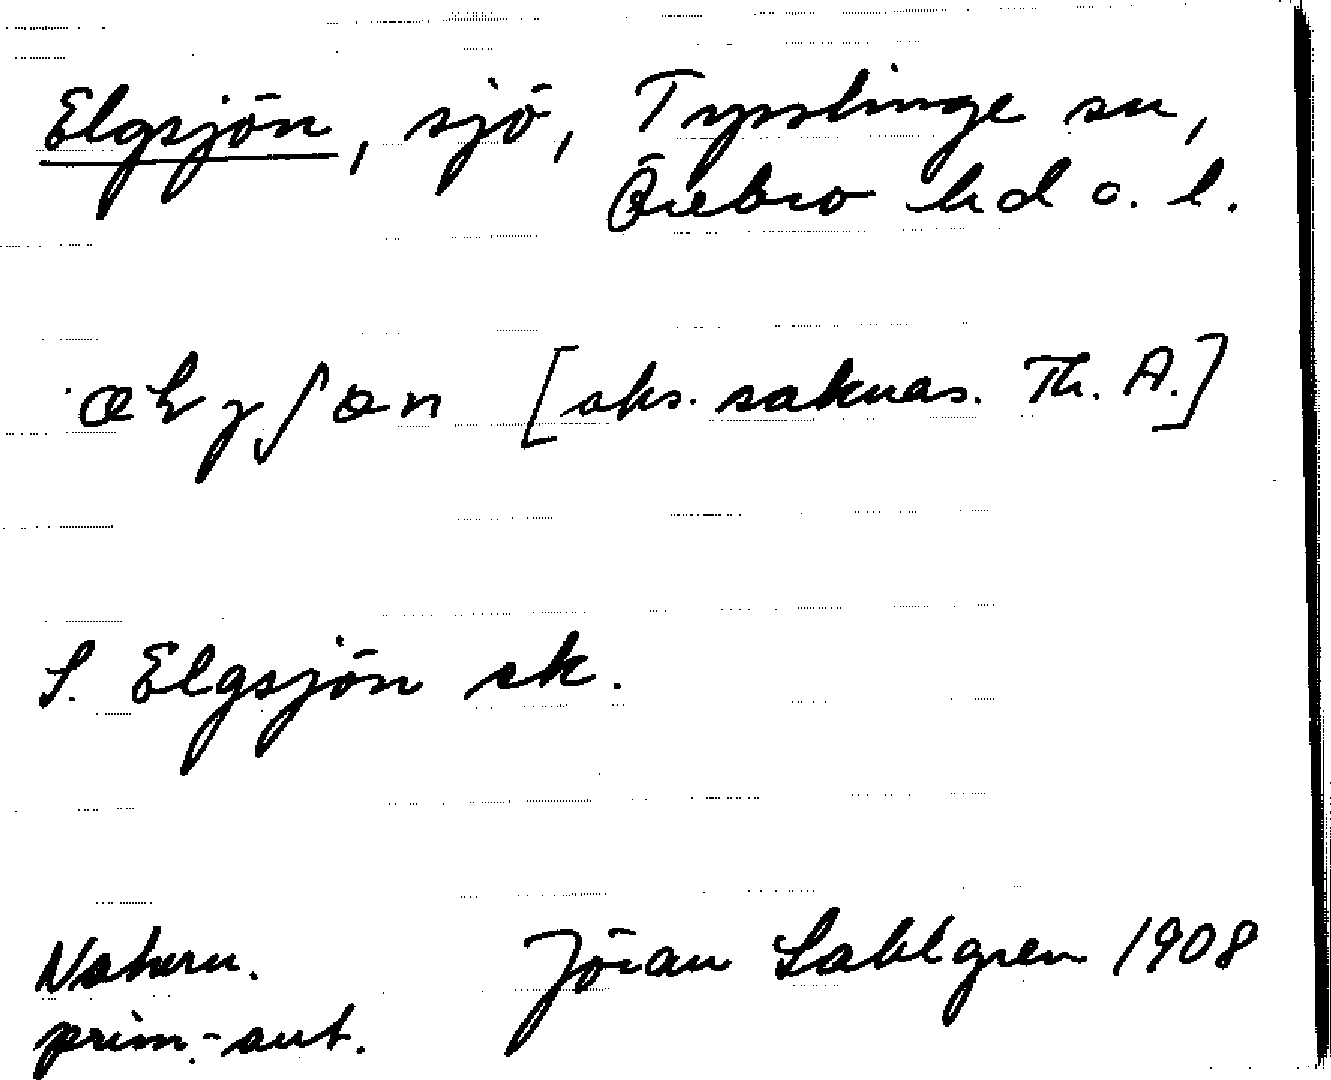 Elgsjön, sjö, Tysslinge sn,
Örebro hd o. l.
[aks. saknas. Th. A.]
S. Elgsjön ek.
Naturn.
prim.-ant. Jöran Sahlgren 1908